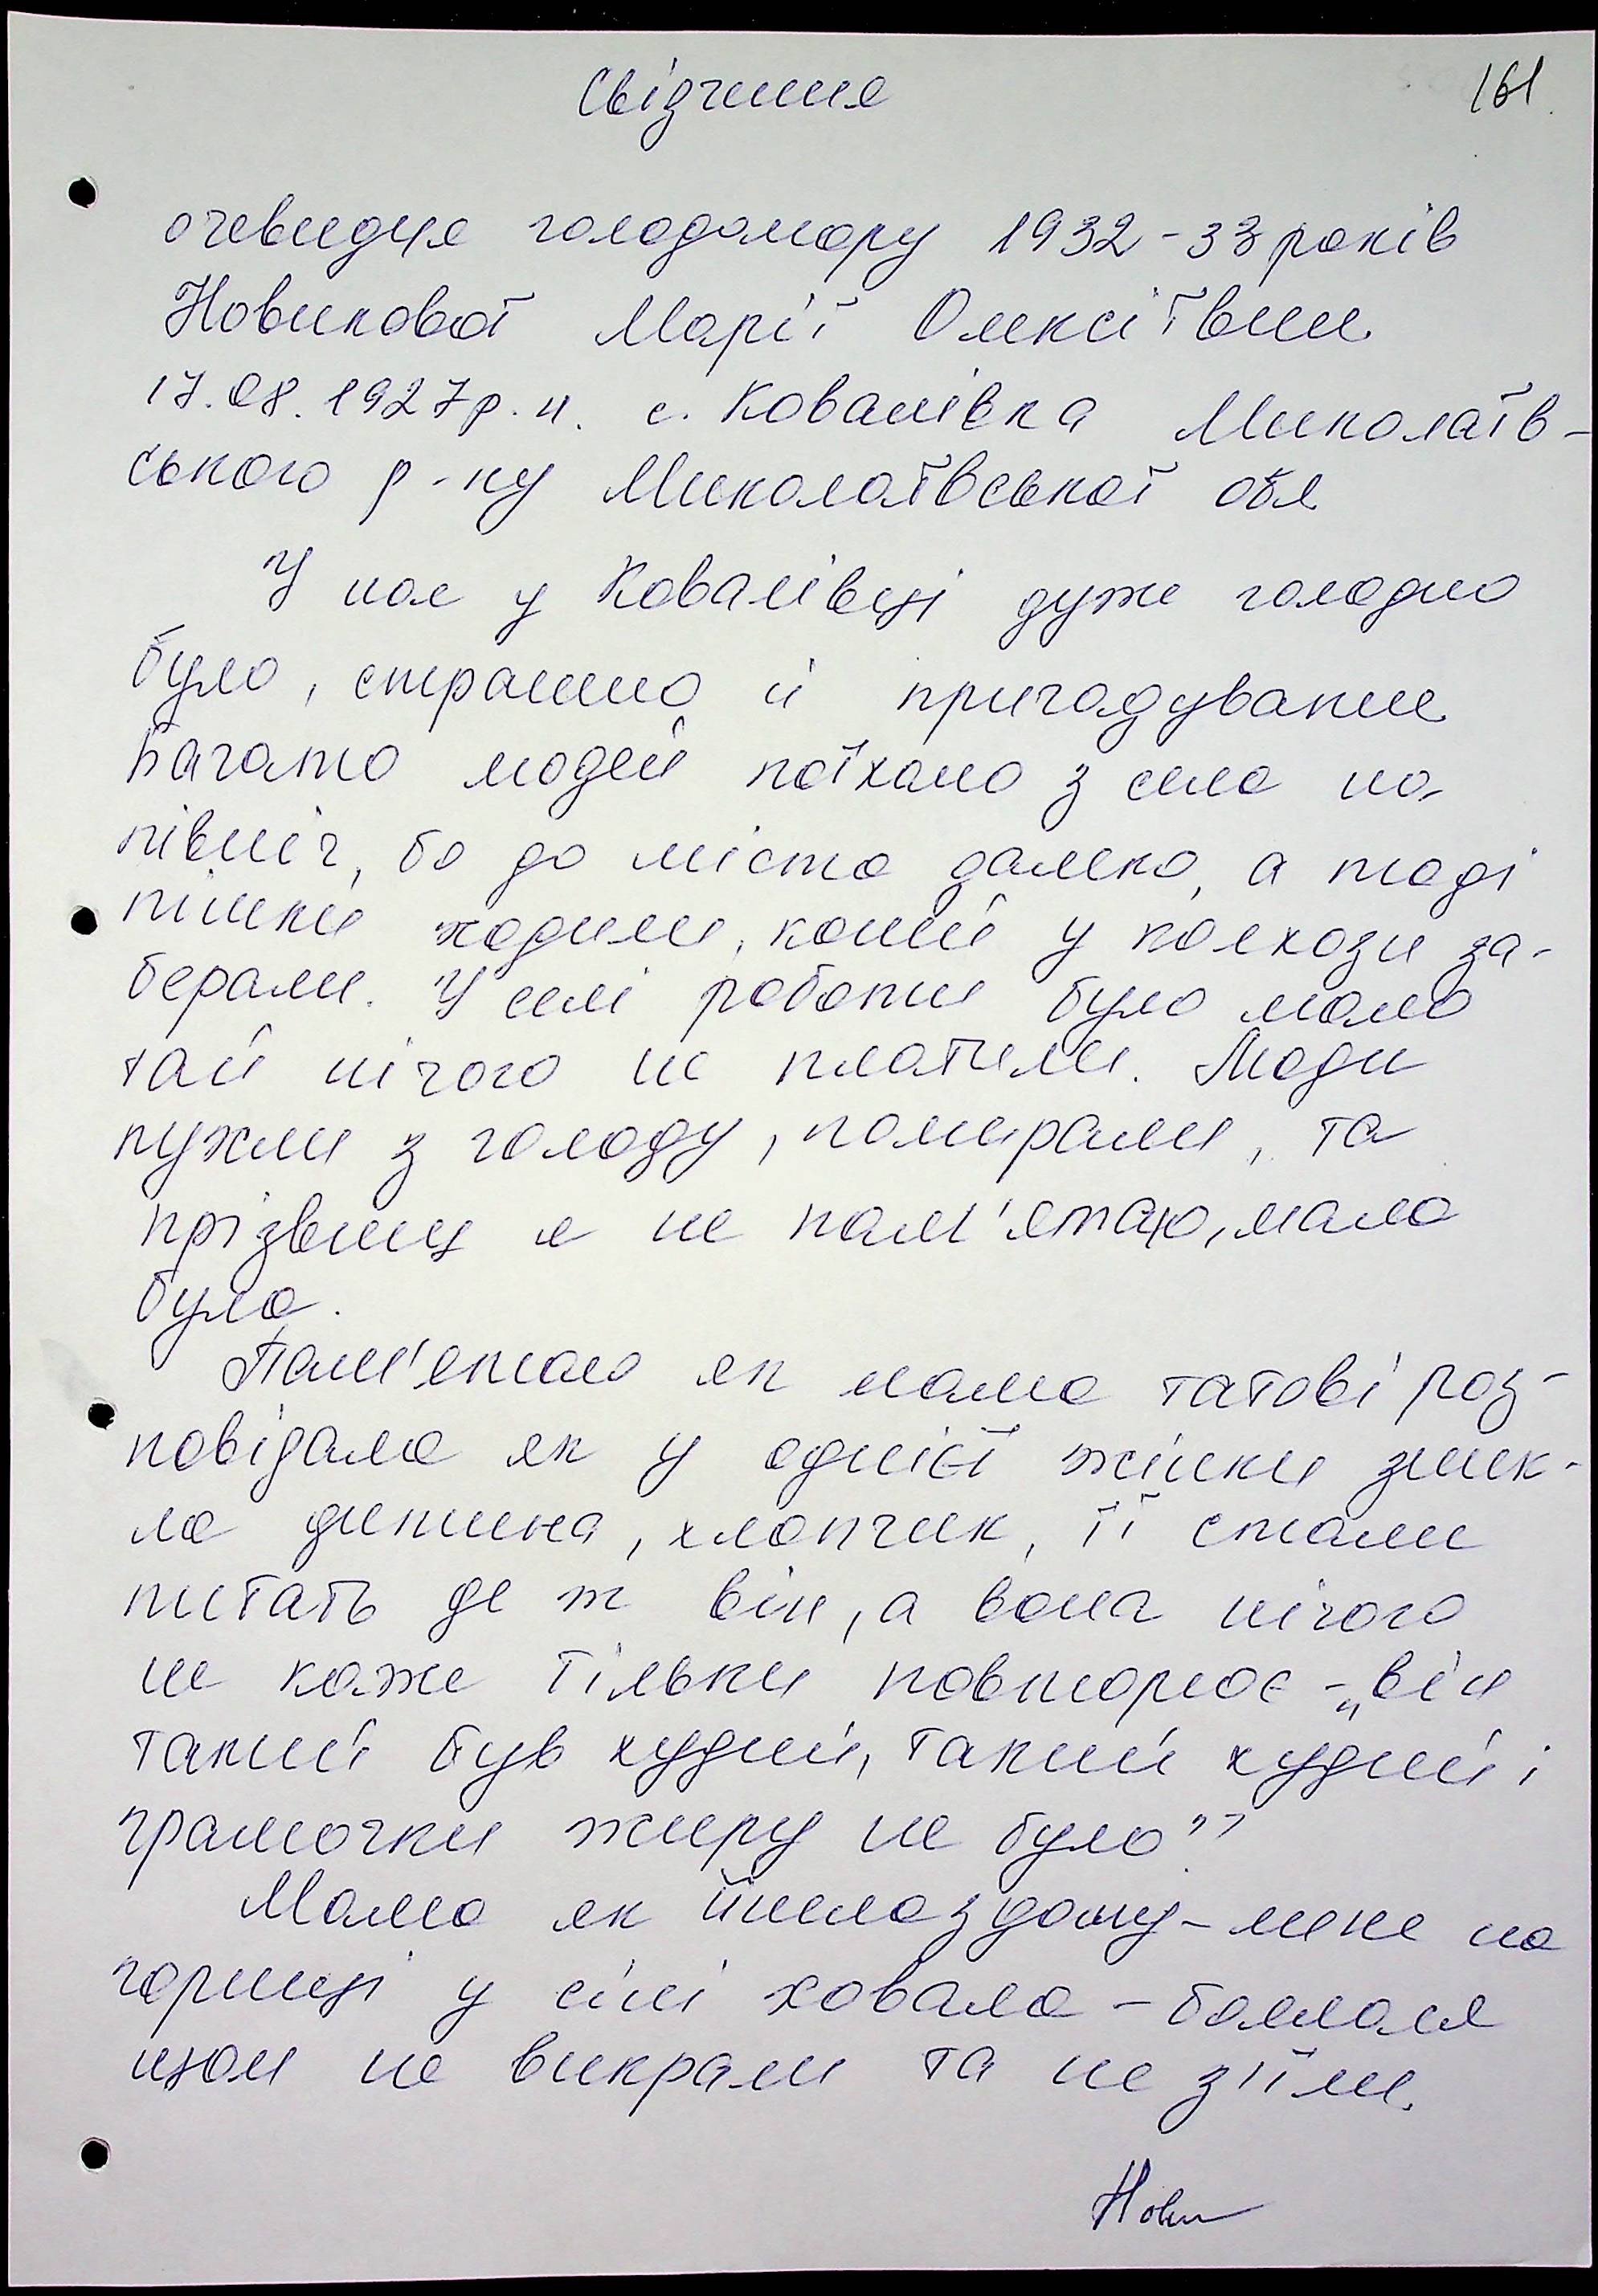 Свідчення
161
очевидця голодомору 1932-33 років
Новикової Марії Олексіївни
17.08.1927 р.н. с. Ковалівка Миколаїв-
ського р-ну Миколаївської обл
У нас у Ковалівці дуже голодно
було, страшно й пригадувати
багато людей поїхало з села на
північ, бо до міста далеко, а тоді
пішки ходили, коний у колхози за-
берали. У селі роботи було мало
тай нічого не платили. Люди
пухли з голоду, помирали, та
прізвищ я не пам'ятаю, мала
була.
Пам'ятаю як мама татові роз-
повідала як у однієї жінки зник-
ла дитина, хлопчик, її стали
питать де ж він, а вона нічого
не каже тільки повторює - „він
такий був худий, такий худий і
грамочки жиру не було”
Мама як йшла з дому - мене на
горищі у сіні ховала - боялася
щоб не викрали та не з'їли.
Нови